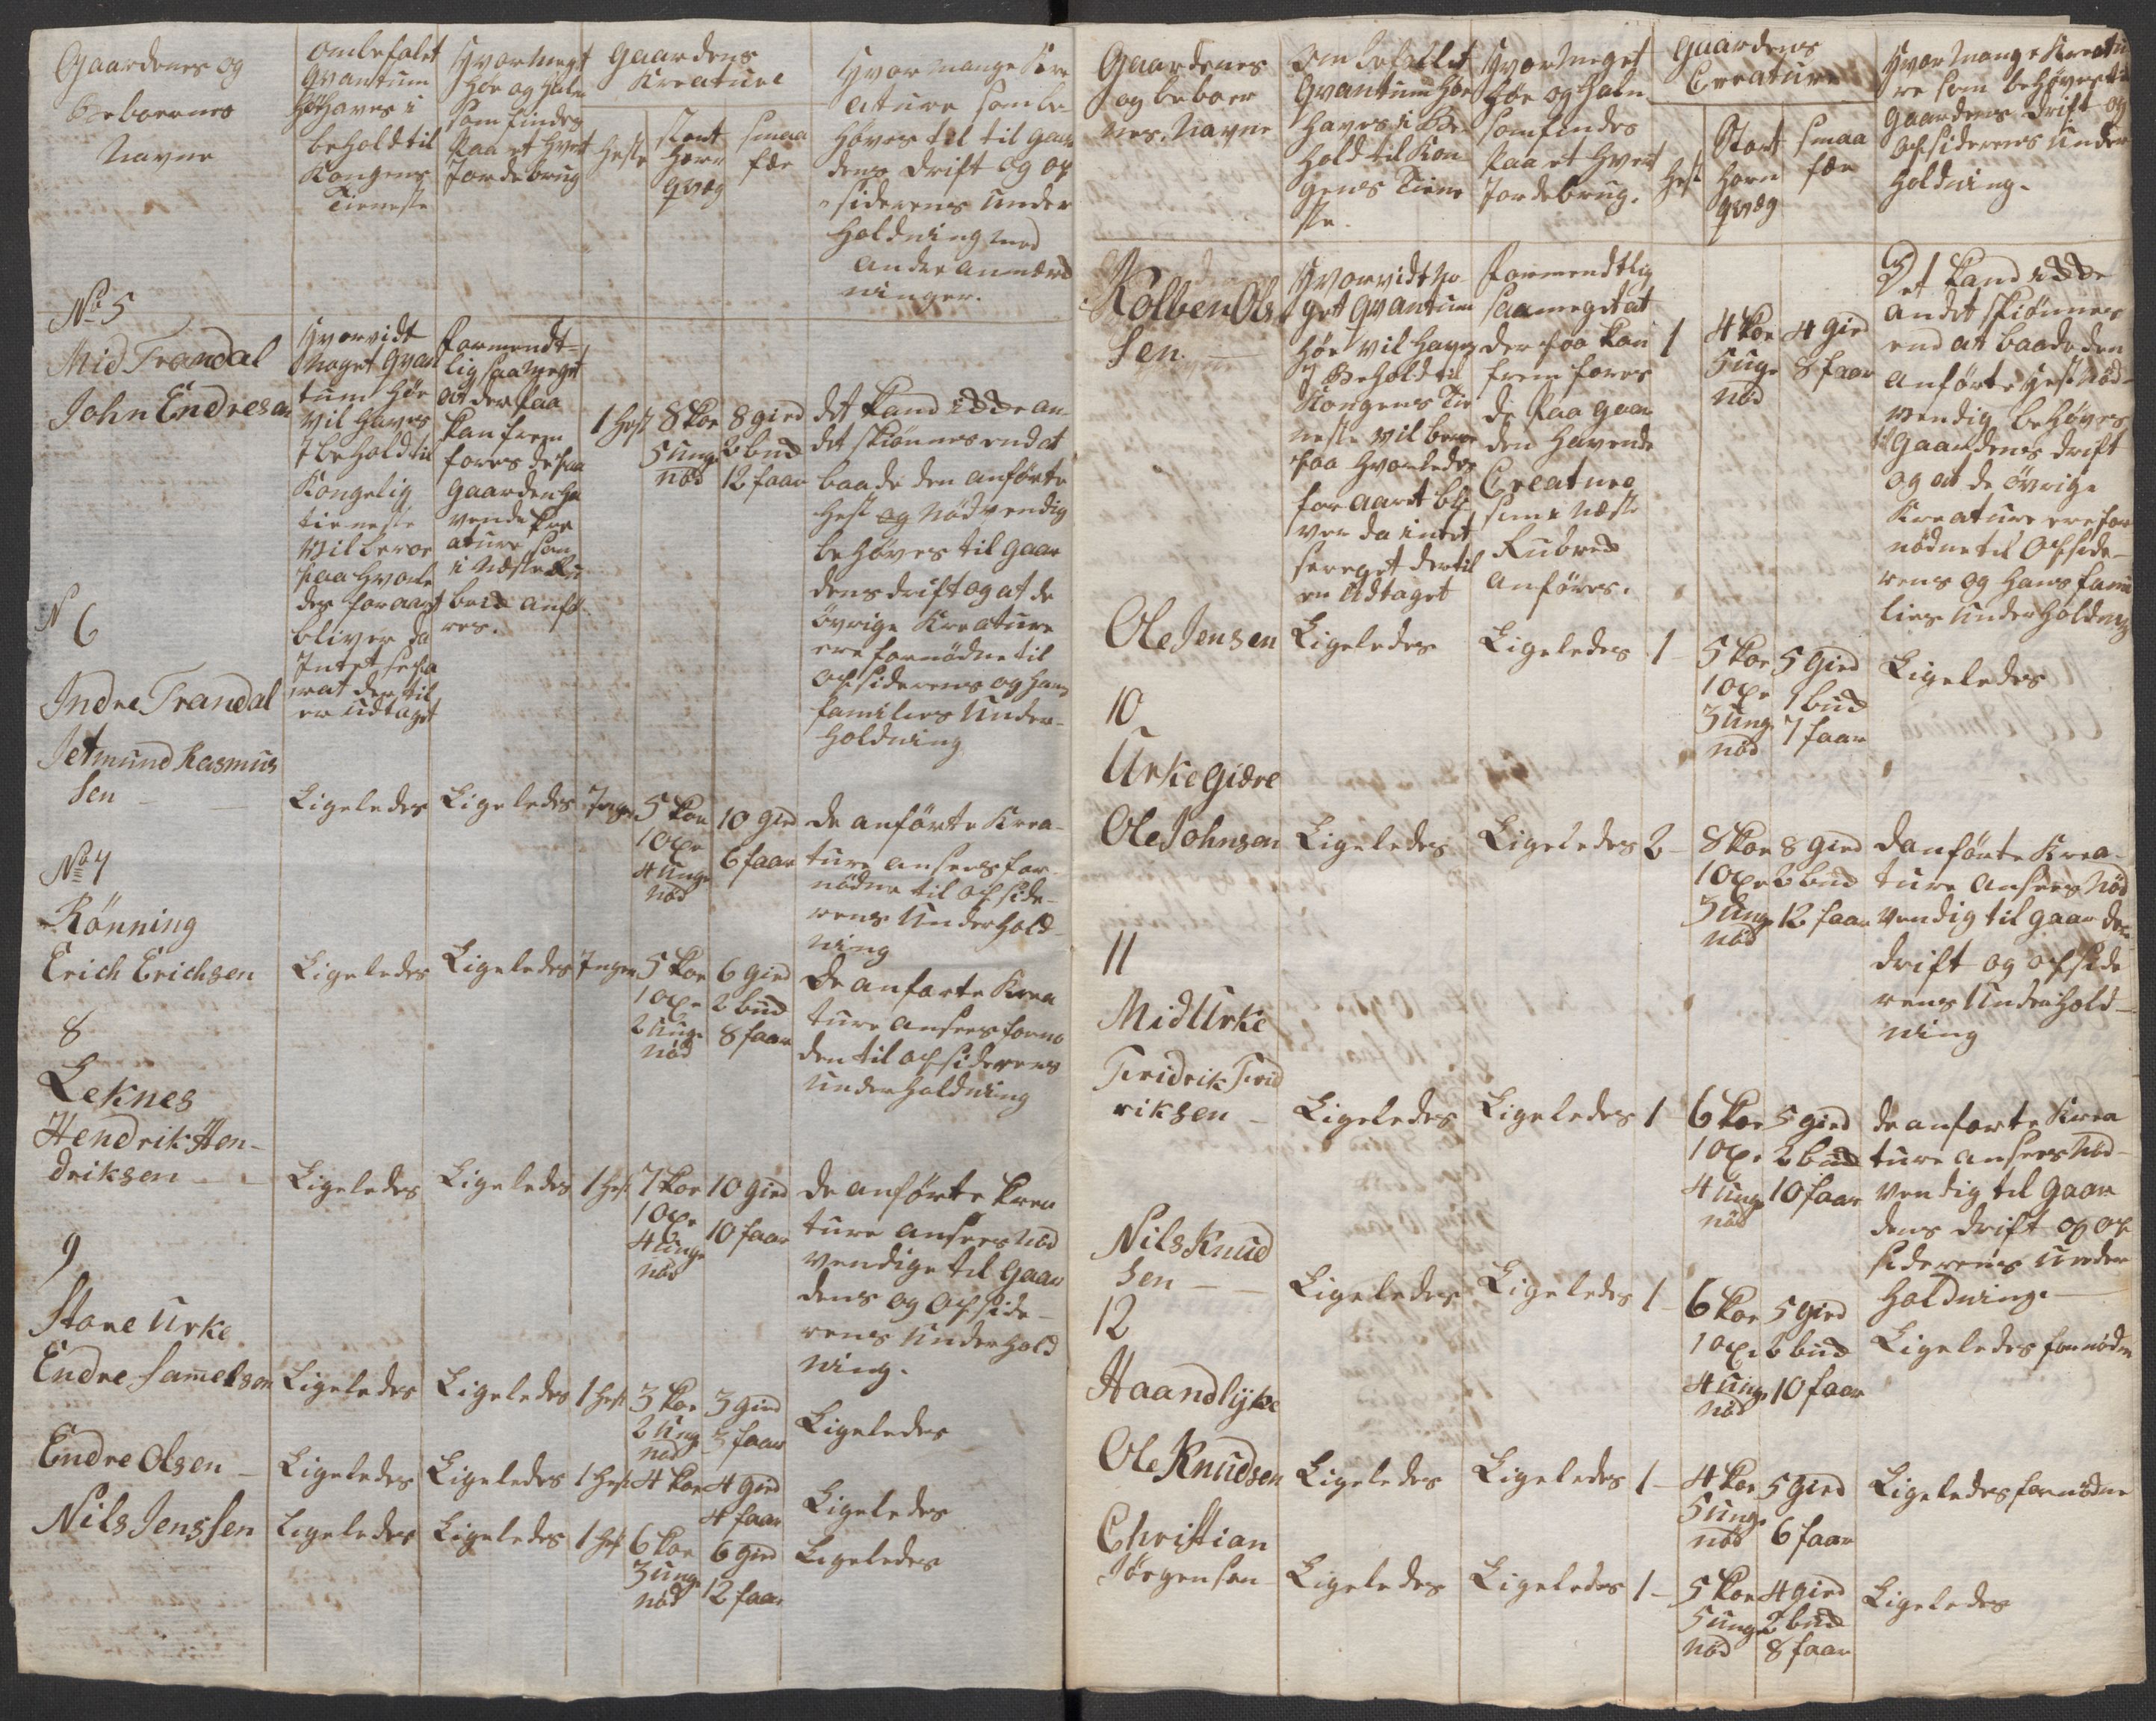 Gaardenes og
Beboernes
Navne
ombefalet
Qvantum
Höe Haves i
behold til
Kongens
Tieneste
Hvor Meget
Höe og Halm
som findes
Paa et hvert
Jordebrug
Gaardens
Kreature
Heste
stort
Horn
qvæg
smaa
fæe
Hvor mange Kre
ature som be
höves til til gaar
dens drift og op
siderens under
holdning med
andre anmærk
ninger.
No 5
Mid Trandal
John Endresen
Hvorvidt
Noget Qvan
tum Höe
vil Haves
I behold til
Kongelig
tieneste
vil beroe
paa Hvorle
des foraaret
bliver da
Intet sepa
rat der til
er udtaget
formendt-
lig saa meget
at der paa
kan frem
fores de paa
Gaarden ha
vende kre
ature som
i Næste Ru
brik anfö
res.
1 Hest
8 kör
5 ung
nöd
8 gied
2 bud
12 faar
det kand ikke an-
det skiönnes end at
baade den anförte
Hest og Nödvendig
behöves til Gaar
dens drift og at de
övrige Kreature
ere fornödne til
opsiderens og hans
families Under-
holdning
N 6
Indre Trandal
Jetmund Rasmus
sen
Ligeledes
Ligeledes
Ingen
5 kör
1 oxe
4 unge
nöd
10 gied
6 faar
de anförte Krea-
ture ansees for
nödne til opside-
rens Underhold-
ning
No 7
Rönning
Erich Erichsen
Ligeledes
Ligeledes
Ingen
5 kör
1 oxe
2 unge
nöd
6 gied
2 bud
8 faar
De anforte Krea
ture ansees fornö
den til opsiderens
underholdning
8
Leknes
Hendrik Hen-
driksen
Ligeledes
Ligeledes
1 Hest
7 kör
1 oxe
4 unge
nöd
10 gied
10 faar
de anförte krea
ture ansees nöd
vendige til Gaar
dens og opside-
rens Underhold
ning.
9
Store Urke
Endre Samelsen
Ligeledes
Ligeledes
1 Hest
3 kör
2 ung
nöd
3 gied
5 faar
Ligeledes
Endre Olsen
Ligeledes
Ligeledes
1 Hest
4 kör
4 gied
4 faar
Ligeledes
Nils Jenssen
Ligeledes
Ligeledes
1 Hest
6 kör
3 ung
nöd
6 gied
12 faar
Ligeledes
Gaardenes
og beboer
nes Navne
Ombefallet
Qvantum Höe
haves i Be
hold til Kon
gens Tiene
ste.
Hvor Meget
Höe og Halm
som findes
Paa et hvert
Jordebrug.
Gaardens
Creature
Hest
Stort
Horn
qvæg
smaa
fæe
Hvor Mange Kreatu
re som behöves til
Gaardens Drift og
Opsiderens Under
holdning.
Kolben Ols
sen
Hvorvidt no
get Qvantum
Höe vil Haves
i Behold til
Kongens Tie
neste vil beroe
paa Hvorledes
foraaret bli
ver da intet
sereget dertil
er Udtaget
formendtlig
saameget at
der paa kan
frem fores
de paa Gaar
den havende
Creature
som i Næste
Rubrik
anföres.
1
4 kör
5 unge
nöd
4 gied
8 faar
Det kand ikke
andet skiönnes
end at baade den
anförte Hest Nöd-
vendig behöves
til Gaardens drift
og at de övrige
Kreature ere for
nödne til Opside-
rens og hans fami
lies Underholdning
Ole Jensen
Ligeledes
Ligeledes
1
5 kör
1 oxe
3 ung
nöd
5 gied
1 bud
7 faar
Ligeledes
10
Urke Giære
Ole Johnsen
Ligeledes
Ligeledes
2
8 kör
1 oxe
3 ung
nöd
8 gied
2 bud
12 faar
de anförte Krea-
ture ansees Nöd
vendig til gaardens
drift og opside
rens Underhold-
ning
11
Mid Urke
Fridrik Frid
riksen
Ligeledes
Ligeledes
1
6 kör
1 oxe
4 ung
nöd
5 gied
2 bud
10 faar
de anforte Krea
ture ansees Nöd-
vendig til gaar
dens drift og op
siderens Under
holdning.
Nils Knud
sen
Ligeledes
Ligeledes
1
6 kör
1 oxe
4 ung
nöd
5 gied
2 bud
10 faar
Ligeledes fornödne
12
Haandlykke
Ole Knudsen
Ligeledes
Ligeledes
1
4 kör
5 ung
nöd
5 gied
6 faar
Ligeledes fornödne
Christian
Jörgensen
Ligeledes
Ligeledes
1
5 kör
5 ung
nöd
4 gied
2 bud
8 faar
Ligeledes